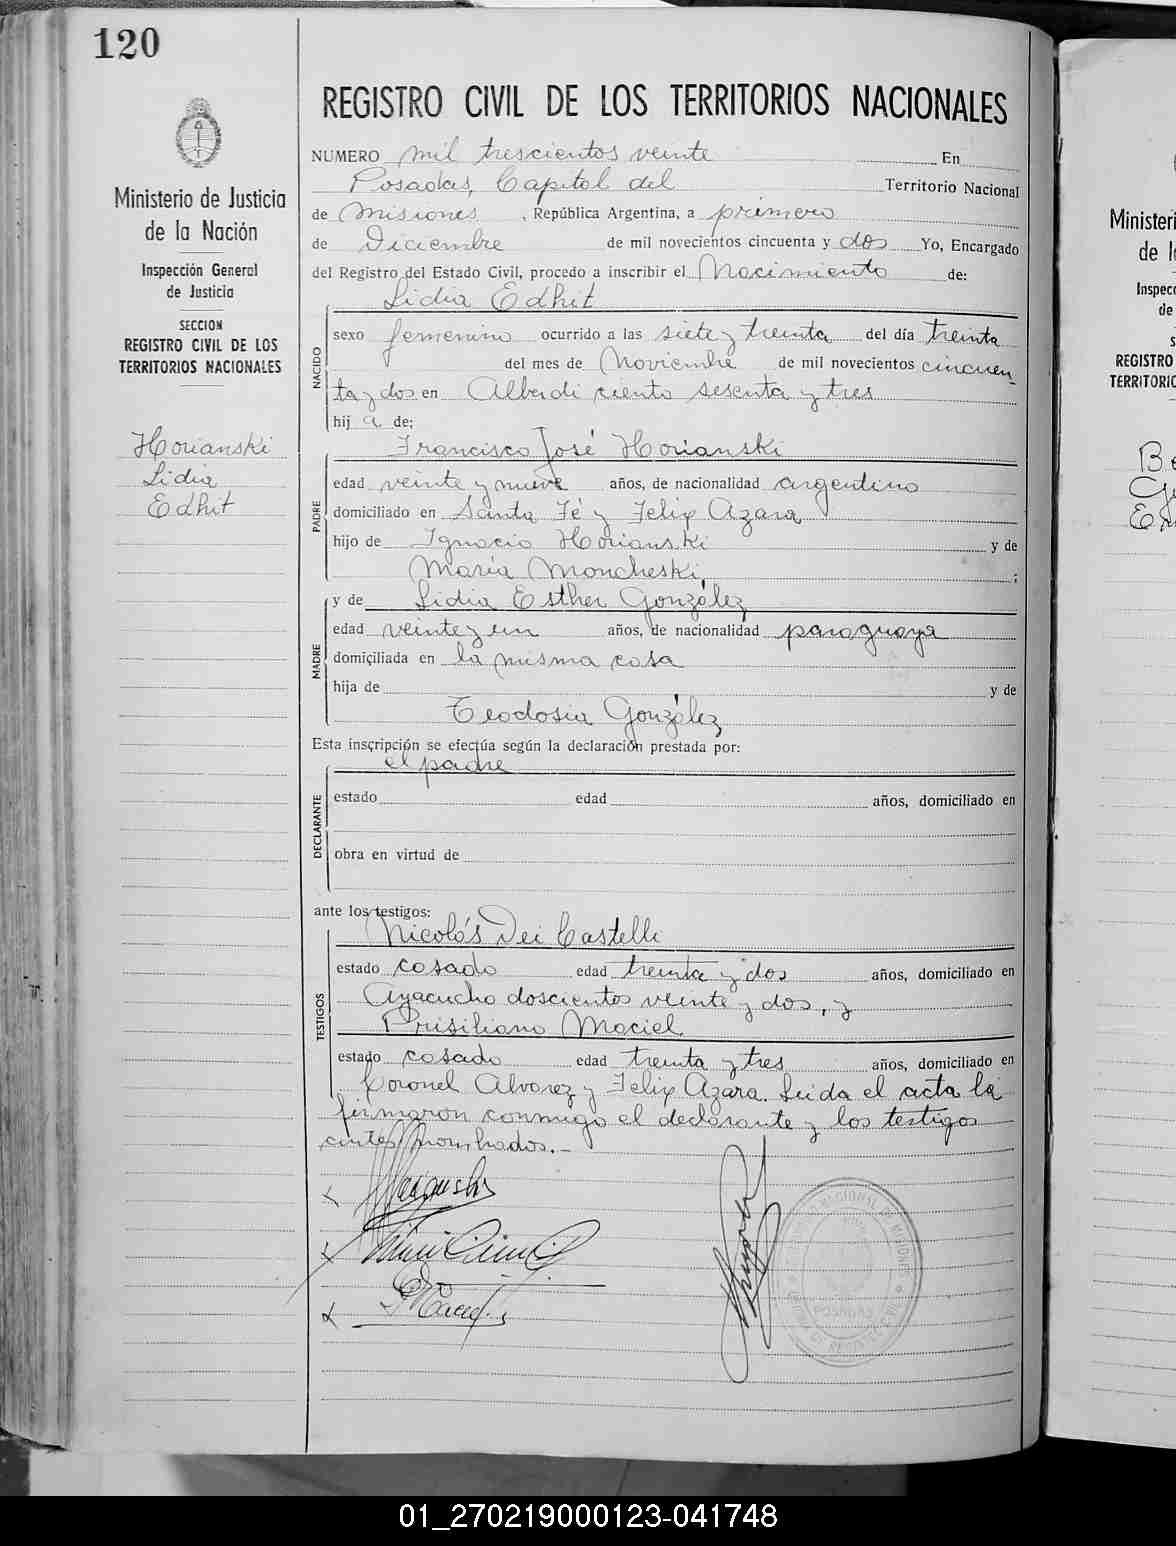 120
Ministerio de Justicia
de la Nación
Inspección General
de Justicia
SECCION
REGISTRO CIVIL DE LOS
TERRITORIOS NACIONALES
Horianski
Lidia
Edhit
REGISTRO CIVIL DE LOS TERRITORIOS NACIONALES
NUMERO mil trescientos veinte En
Posadas, Capital del Territorio Nacional
de Misiones, República Argentina, a primero
de Diciembre de mil novecientos cincuenta y dos Yo, Encargado
del Registro del Estado Civil, procedo a inscribir el Nacimiento de:
Lidia Edhit
NACIDO
sexo femenino ocurrido a las siete y treinta del día treinta
del mes de Noviembre de mil novecientos cincuen
ta y dos en Alberdi ciento sesenta y tres
hij a de:
Francisco José Horianski
PADRE
edad veinte y nueve años, de nacionalidad argentino
domiciliado en Santa Fé y Felix Azara
hijo de Ignacio Horianski y de
María Moncheski ;
y de Lidia Esther González
MADRE
edad veinte y un años, de nacionalidad paraguaya
domiciliada en la misma casa
hija de y de
Teodosia González
Esta inscripción se efectúa según la declaración prestada por:
el padre
DECLARANTE
estado edad años, domiciliado en
obra en virtud de
ante los testigos:
Nicolás Dei Castelli
TESTIGOS
estado casado edad treinta y dos años, domiciliado en
Ayacucho doscientos veinte y dos, y
Prisiliano Maciel
estado casado edad treinta y tres años, domiciliado en
Coronel Alvarez y Felix Azara. Leida el acta la
firmaron conmigo el declarante y los testigos
antes nombrados.-
POSADAS
Ministeri
de l
Inspec
de
S
REGISTRO
TERRITORIO
01_270219000123-041748